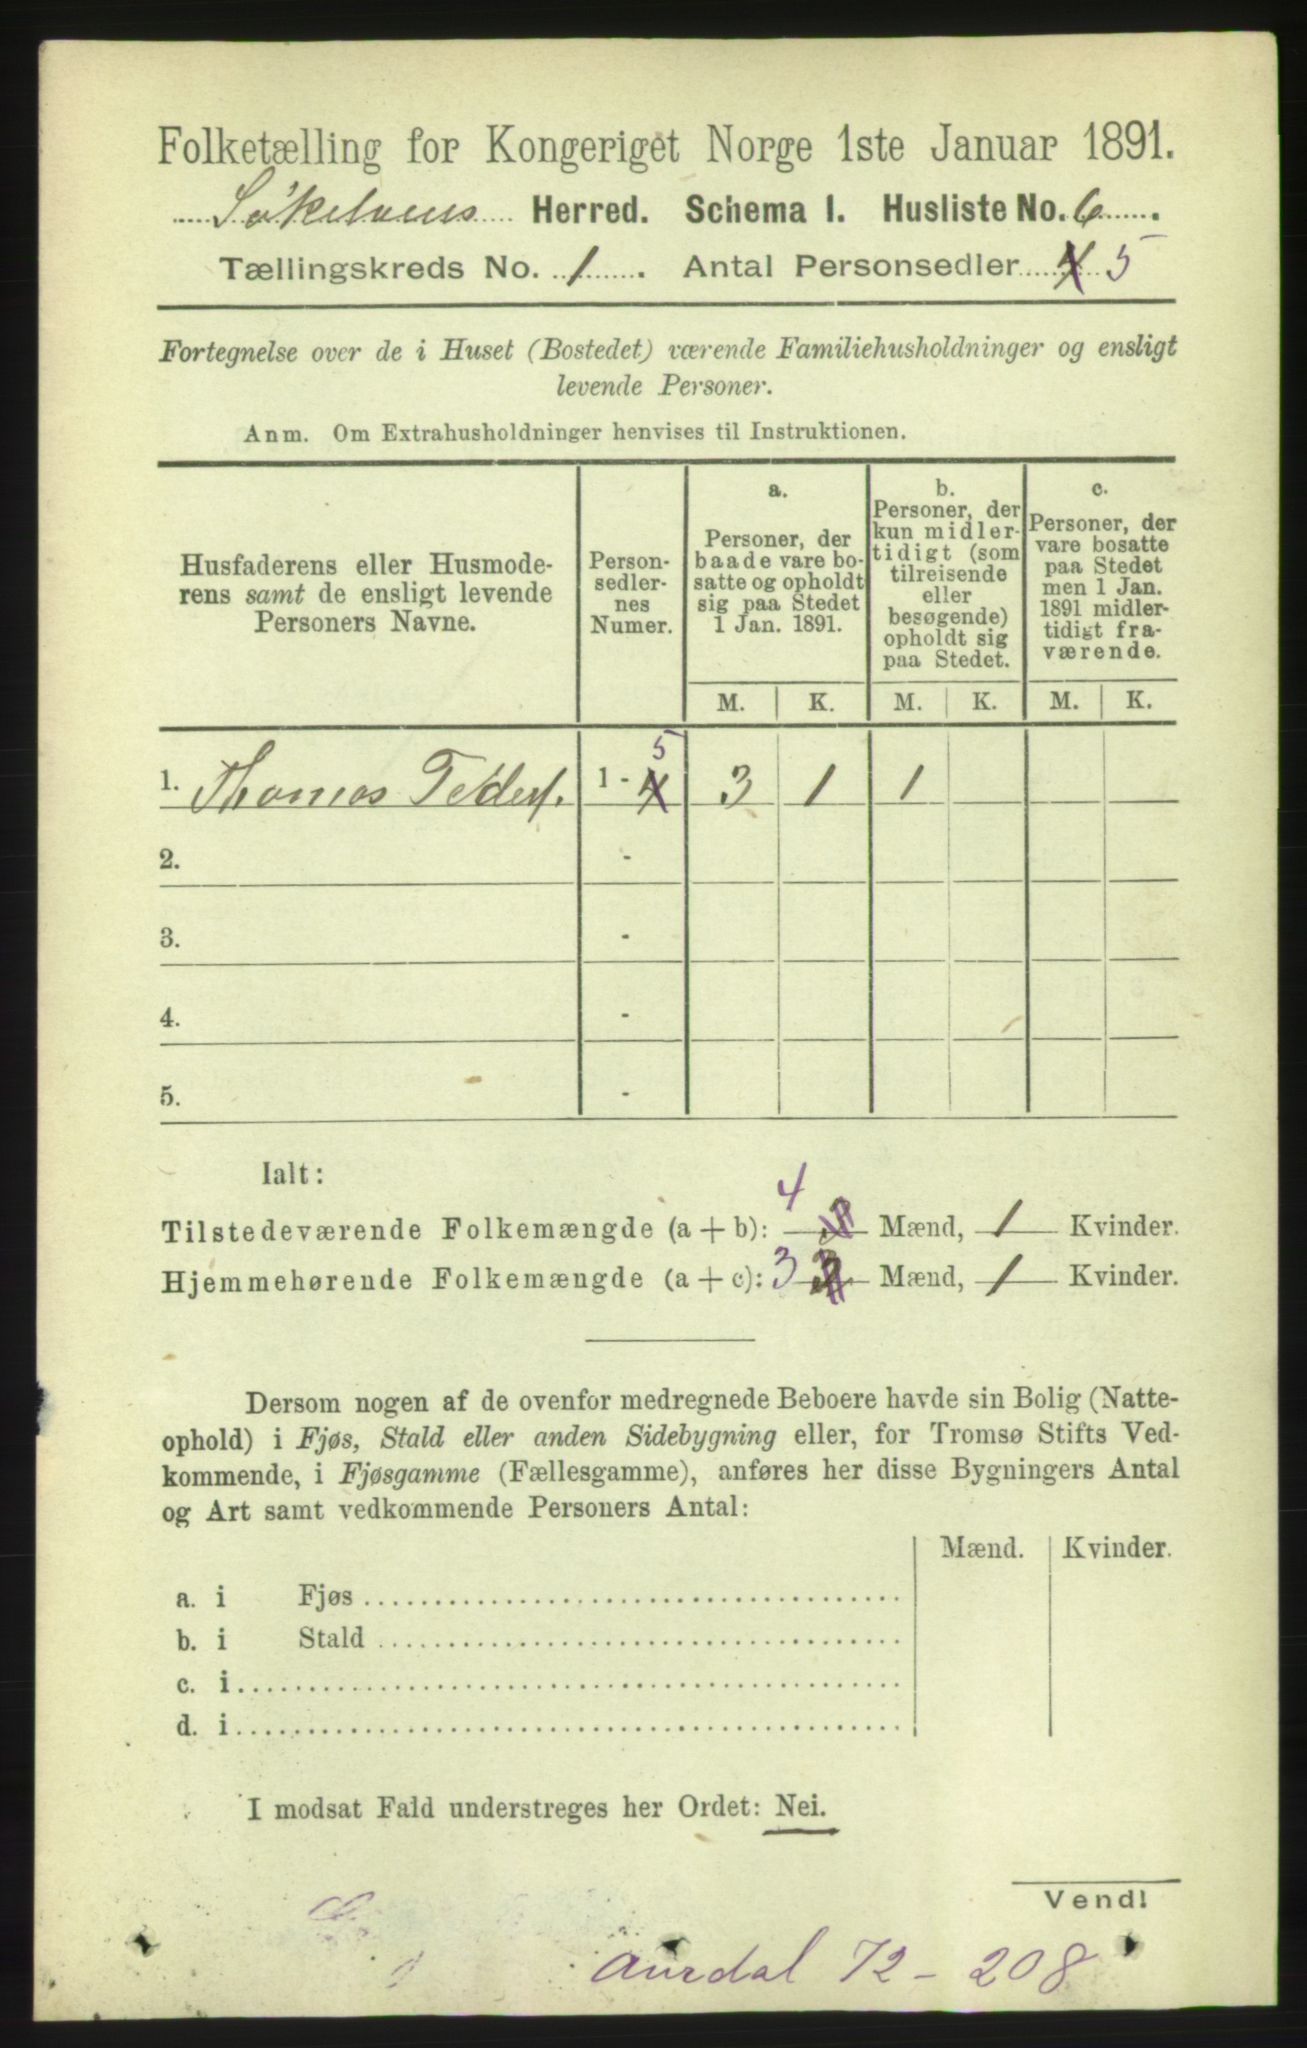 Folketælling for Kongeriget Norge 1ste Januar 1891.
Søkelvens Herred. Schema I. Husliste No. 6.
Tællingskreds No. 1. Antal Personsedler 4 5
Fortegnelse over de i Huset (Bostedet) værende Familiehusholdninger og ensligt
levende Personer.
Anm. Om Extrahusholdninger henvises til Instruktionen.
Husfaderens eller Husmode-
rens samt de ensligt levende
Personers Navne.
Person-
sedler-
nes
Numer.
a.
Personer, der
baade vare bo-
satte og opholdt
sig paa Stedet
1 Jan. 1891.
b.
Personer, der
kun midler-
tidigt (som
tilreisende
eller
besøgende)
opholdt sig
paa Stedet.
c.
Personer, der
vare bosatte
paa Stedet
men 1 Jan.
1891 midler-
tidigt fra-
værende.
M. K. M. K. M. K.
1. Thomas Peders. 1 - 4 5 3 1 1
2. -
3. -
4. -
5. -
Ialt:
Tilstedeværende Folkemængde (a + b): 4 3 Mænd, 1 Kvinder.
Hjemmehørende Folkemængde (a + c): 3 Mænd, 1 Kvinder.
Dersom nogen af de ovenfor medregnede Beboere havde sin Bolig (Natte-
ophold) i Fjøs, Stald eller anden Sidebygning eller, for Tromsø Stifts Ved-
kommende, i Fjøsgamme (Fællesgamme), anføres her disse Bygningers Antal
og Art samt vedkommende Personers Antal:
Mænd. Kvinder.
a. i Fjøs
b. i Stald
c. i
d. i
I modsat Fald understreges her Ordet: Nei.
Vend!
Aurdal 72 - 208